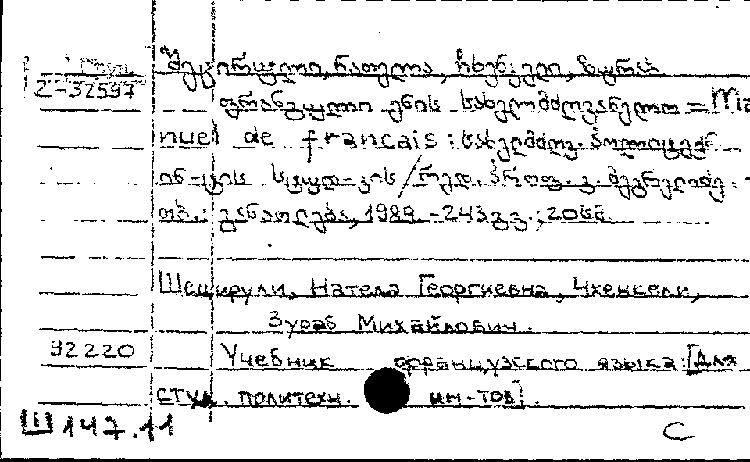 შეყირული, ნათელა, ჩხენკელი, ზურაბ
2-32597
ფრანგული ენის სახელმძღვანელო = Ma
nuel de francais : სახელმძღვ. პოლიტექნ.
ინ-ტის სტუდ-ტის / რედ. პროფ.
თბ.: განათლება, 1989. - 243 გვ.; 20სმ.
Шецирули, Натела Георгиевна, Чхенкели,
Зураб Михайлович.
92220 Учебник французского языка: [Для
студ. политехн. ин-тов].
Ш147.11
С